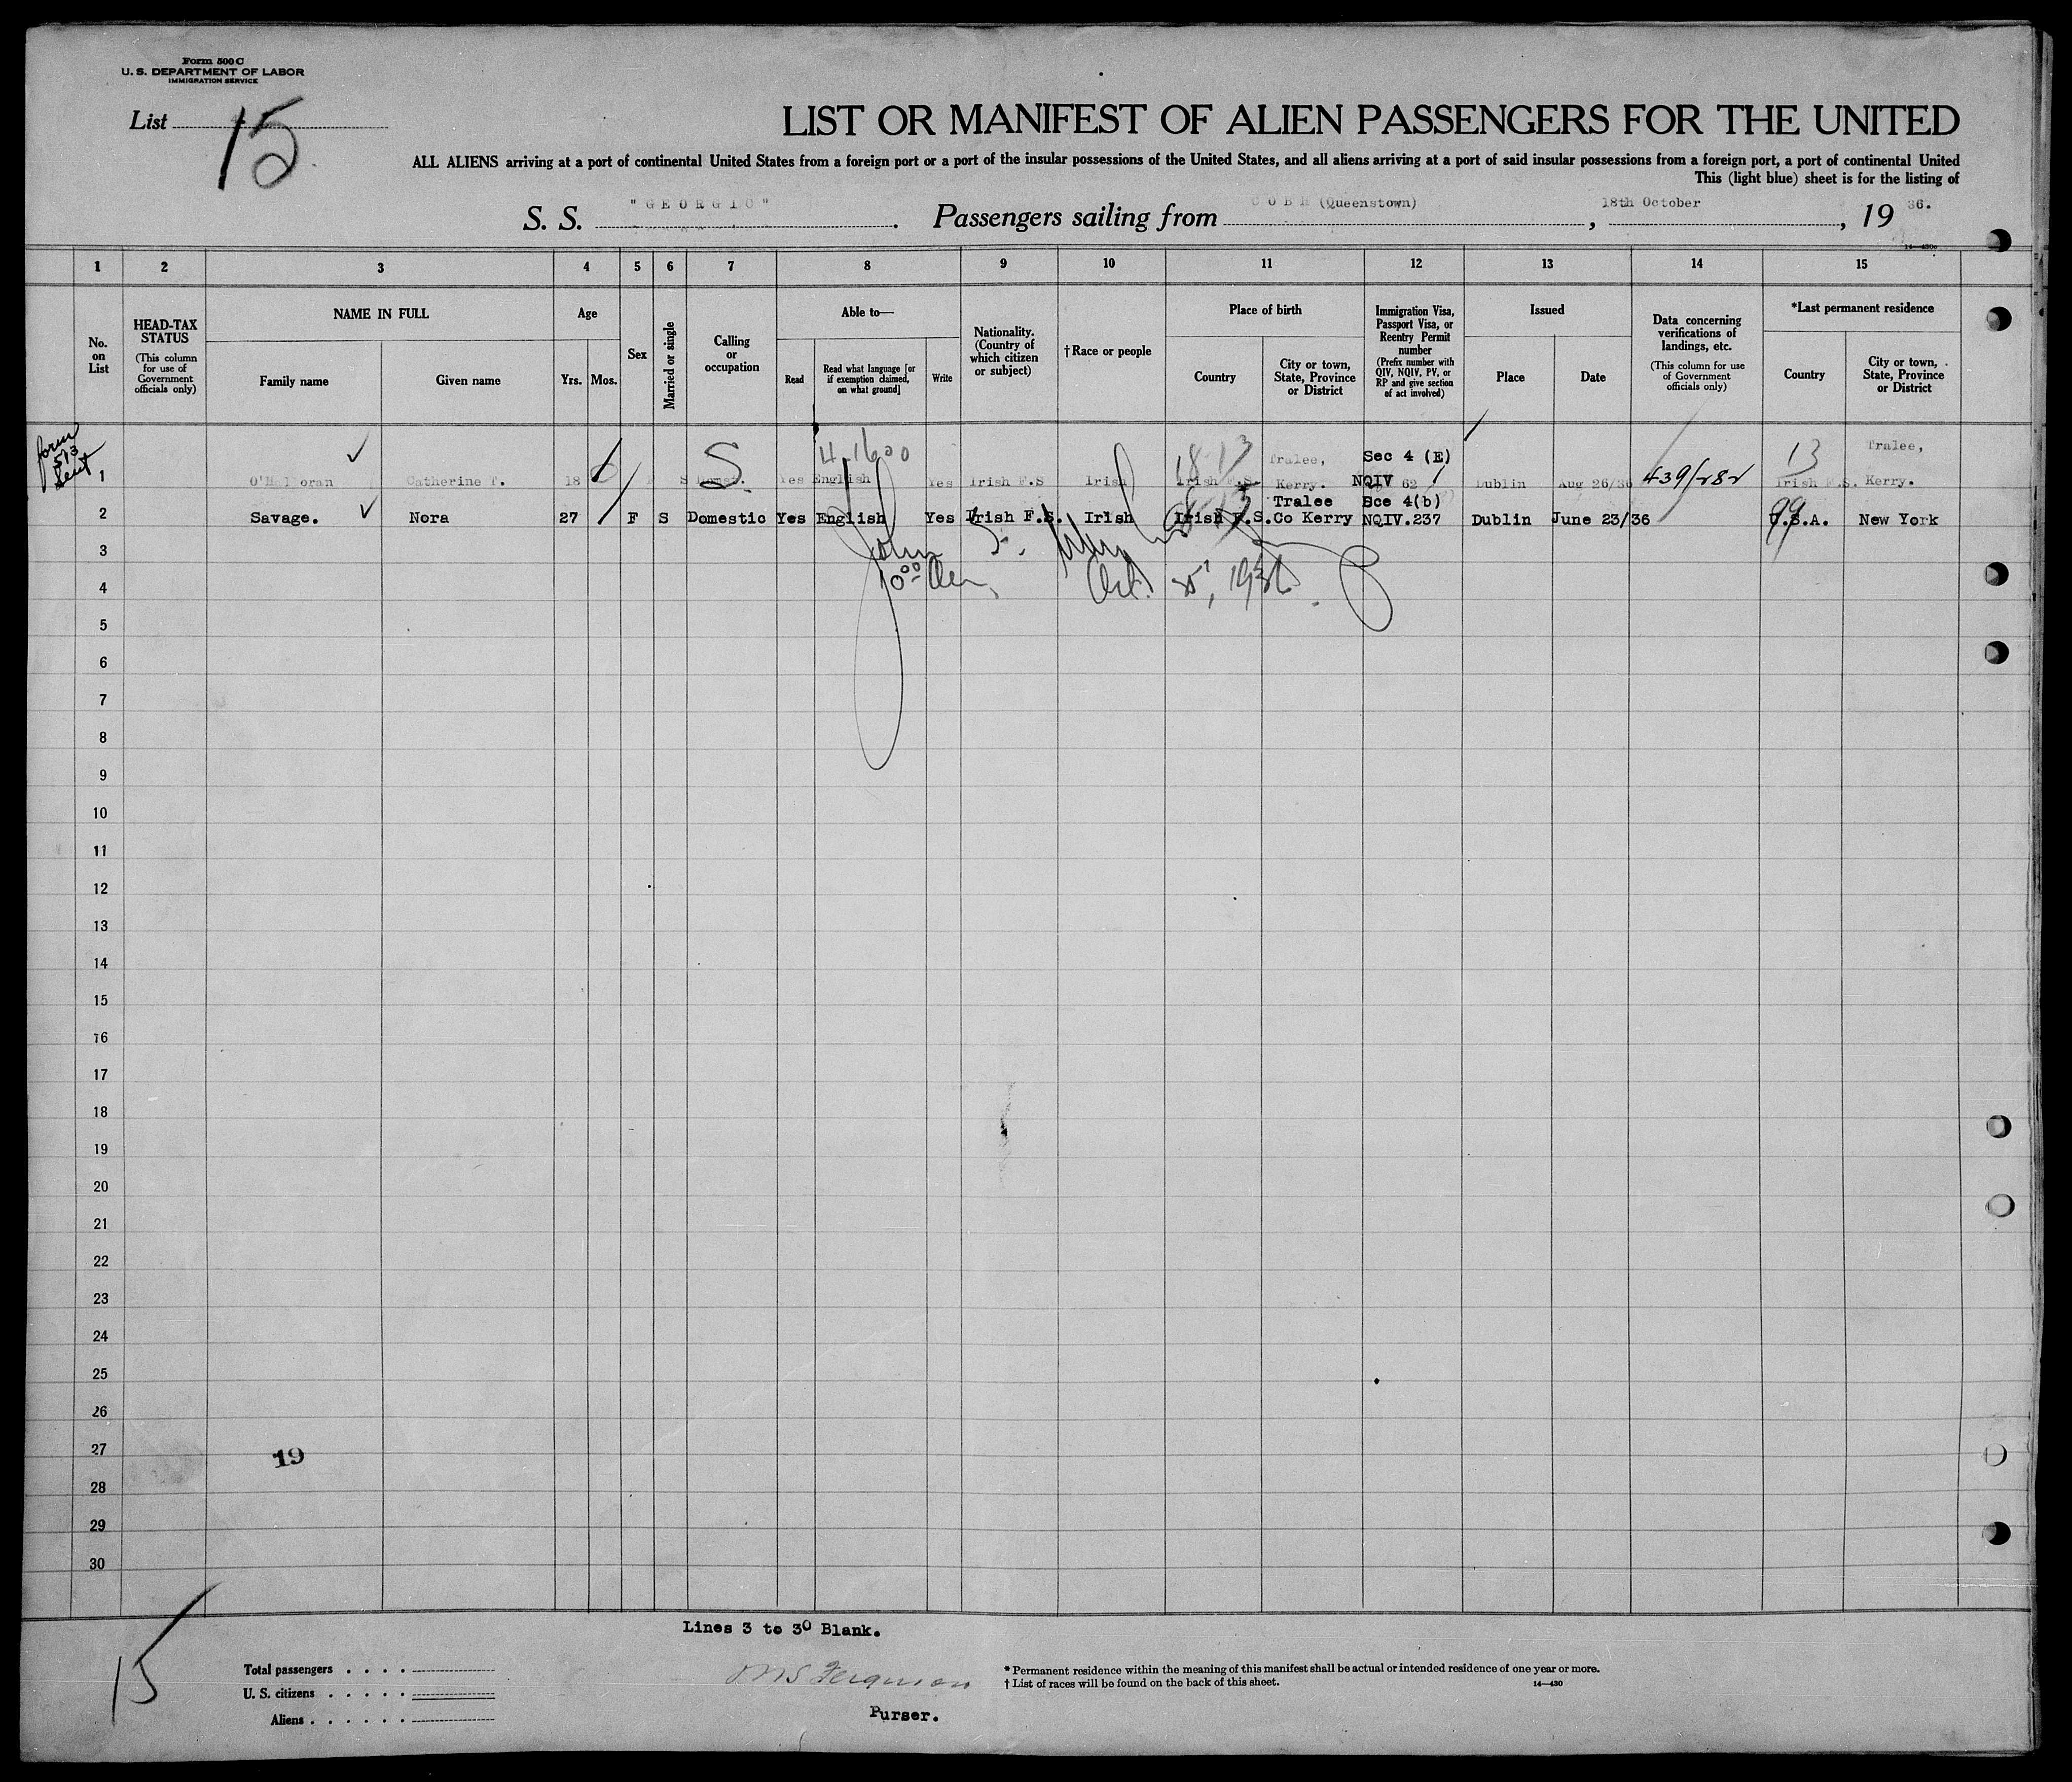 Form 500 C
U. S. DEPARTMENT OF LABOR
IMMIGRATION SERVICE
List 15
LIST OR MANIFEST OF ALIEN PASSENGERS FOR THE UNITED
ALL ALIENS arriving at a port of continental United States from a foreign port or a port of the insular possessions of the United States, and all aliens arriving at a port of said insular possessions from a foreign port, a port of continental United
This (light blue) sheet is for the listing of
S. S. "GEORGIC". Passengers sailing from COBH (Queenstown), 18th October, 1936.
14—430c
1 2 3 4 5 6 7 8 9 10 11 12 13 14 15
No. on List
HEAD-TAX STATUS
(This column for use of Government officials only)
NAME IN FULL
Family name
Given name
Age
Yrs.
Mos.
Sex
Married or single
Calling or occupation
Able to—
Read
Read what language [or if exemption claimed, on what ground]
Write
Nationality. (Country of which citizen or subject)
†Race or people
Place of birth
Country
City or town, State, Province or District
Immigration Visa, Passport Visa, or Reentry Permit number
(Prefix number with QIV, NQIV, PV, or RP and give section of act involved)
Issued
Place
Date
Data concerning verifications of landings, etc.
(This column for use of Government officials only)
*Last permanent residence
Country
City or town, State, Province or District
form 513 sent
S 4-1600 13 Tralee, Sec 4 (E) 13 Tralee,
1 O'Halloran Catherine 18 S Yes English Yes Irish F.S Irish Irish F.S. Kerry. NQIV 62 Dublin Aug 26/36 439/282 Irish F.S. Kerry.
Tralee Sce 4(b) 99
2 Savage. Nora 27 F S Domestic Yes English Yes Irish F.S. Irish Irish F.S. Co Kerry NQIV.237 Dublin June 23/36 U.S.A. New York
John
3
Oct. 25, 1936
4
5
6
7
8
9
10
11
12
13
14
15
16
17
18
19
20
21
22
23
24
25
26
27 19
28
29
30
Lines 3 to 30 Blank.
15
Total passengers . . . .
U. S. citizens . . . . .
Aliens . . . . . .
Ferguson
Purser.
* Permanent residence within the meaning of this manifest shall be actual or intended residence of one year or more.
† List of races will be found on the back of this sheet.
14—430